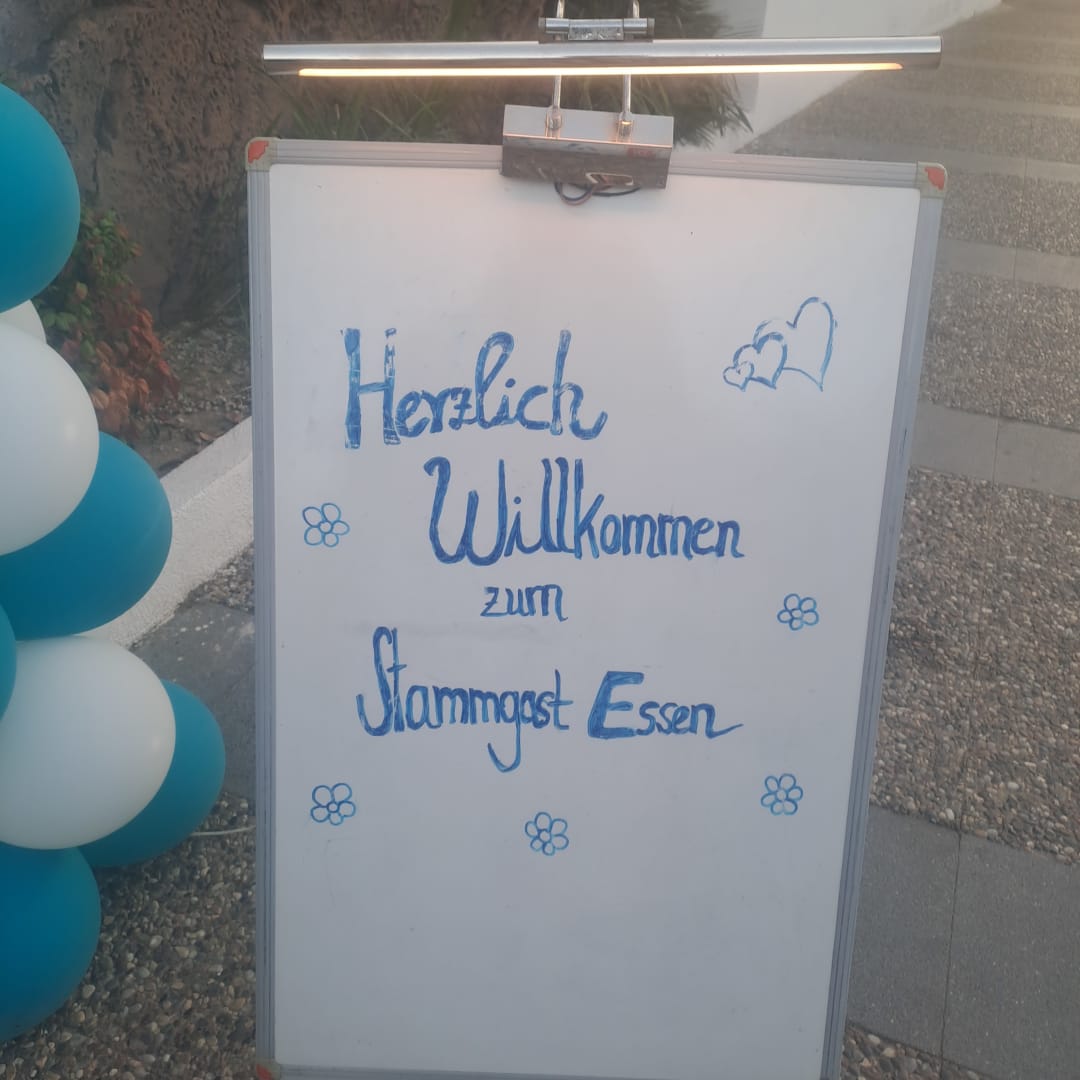 Herzlich
Willkommen
zum
Stammgast Essen